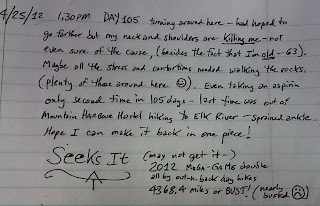 4/25/12 1:30PM DAY 105 turning around here - had hoped to
go farther but my neck and shoulders are killing me - not
even sure of the cause, (besides the fact that I'm old - 63).
Maybe all the stress and contortions needed walking the rocks.
(plenty of those around here ☺). Even taking an aspirin
only second time in 105 days - last time was out of
Mountain Harbour Hostel hiking to Elk River - sprained ankle.
Hope I can make it back in one piece!
Seeks It (may not get it-)
2012 MEGA-GAME double
all by out-n-back day hikes
4368.4 miles or BUST! (nearly
busted ☹)